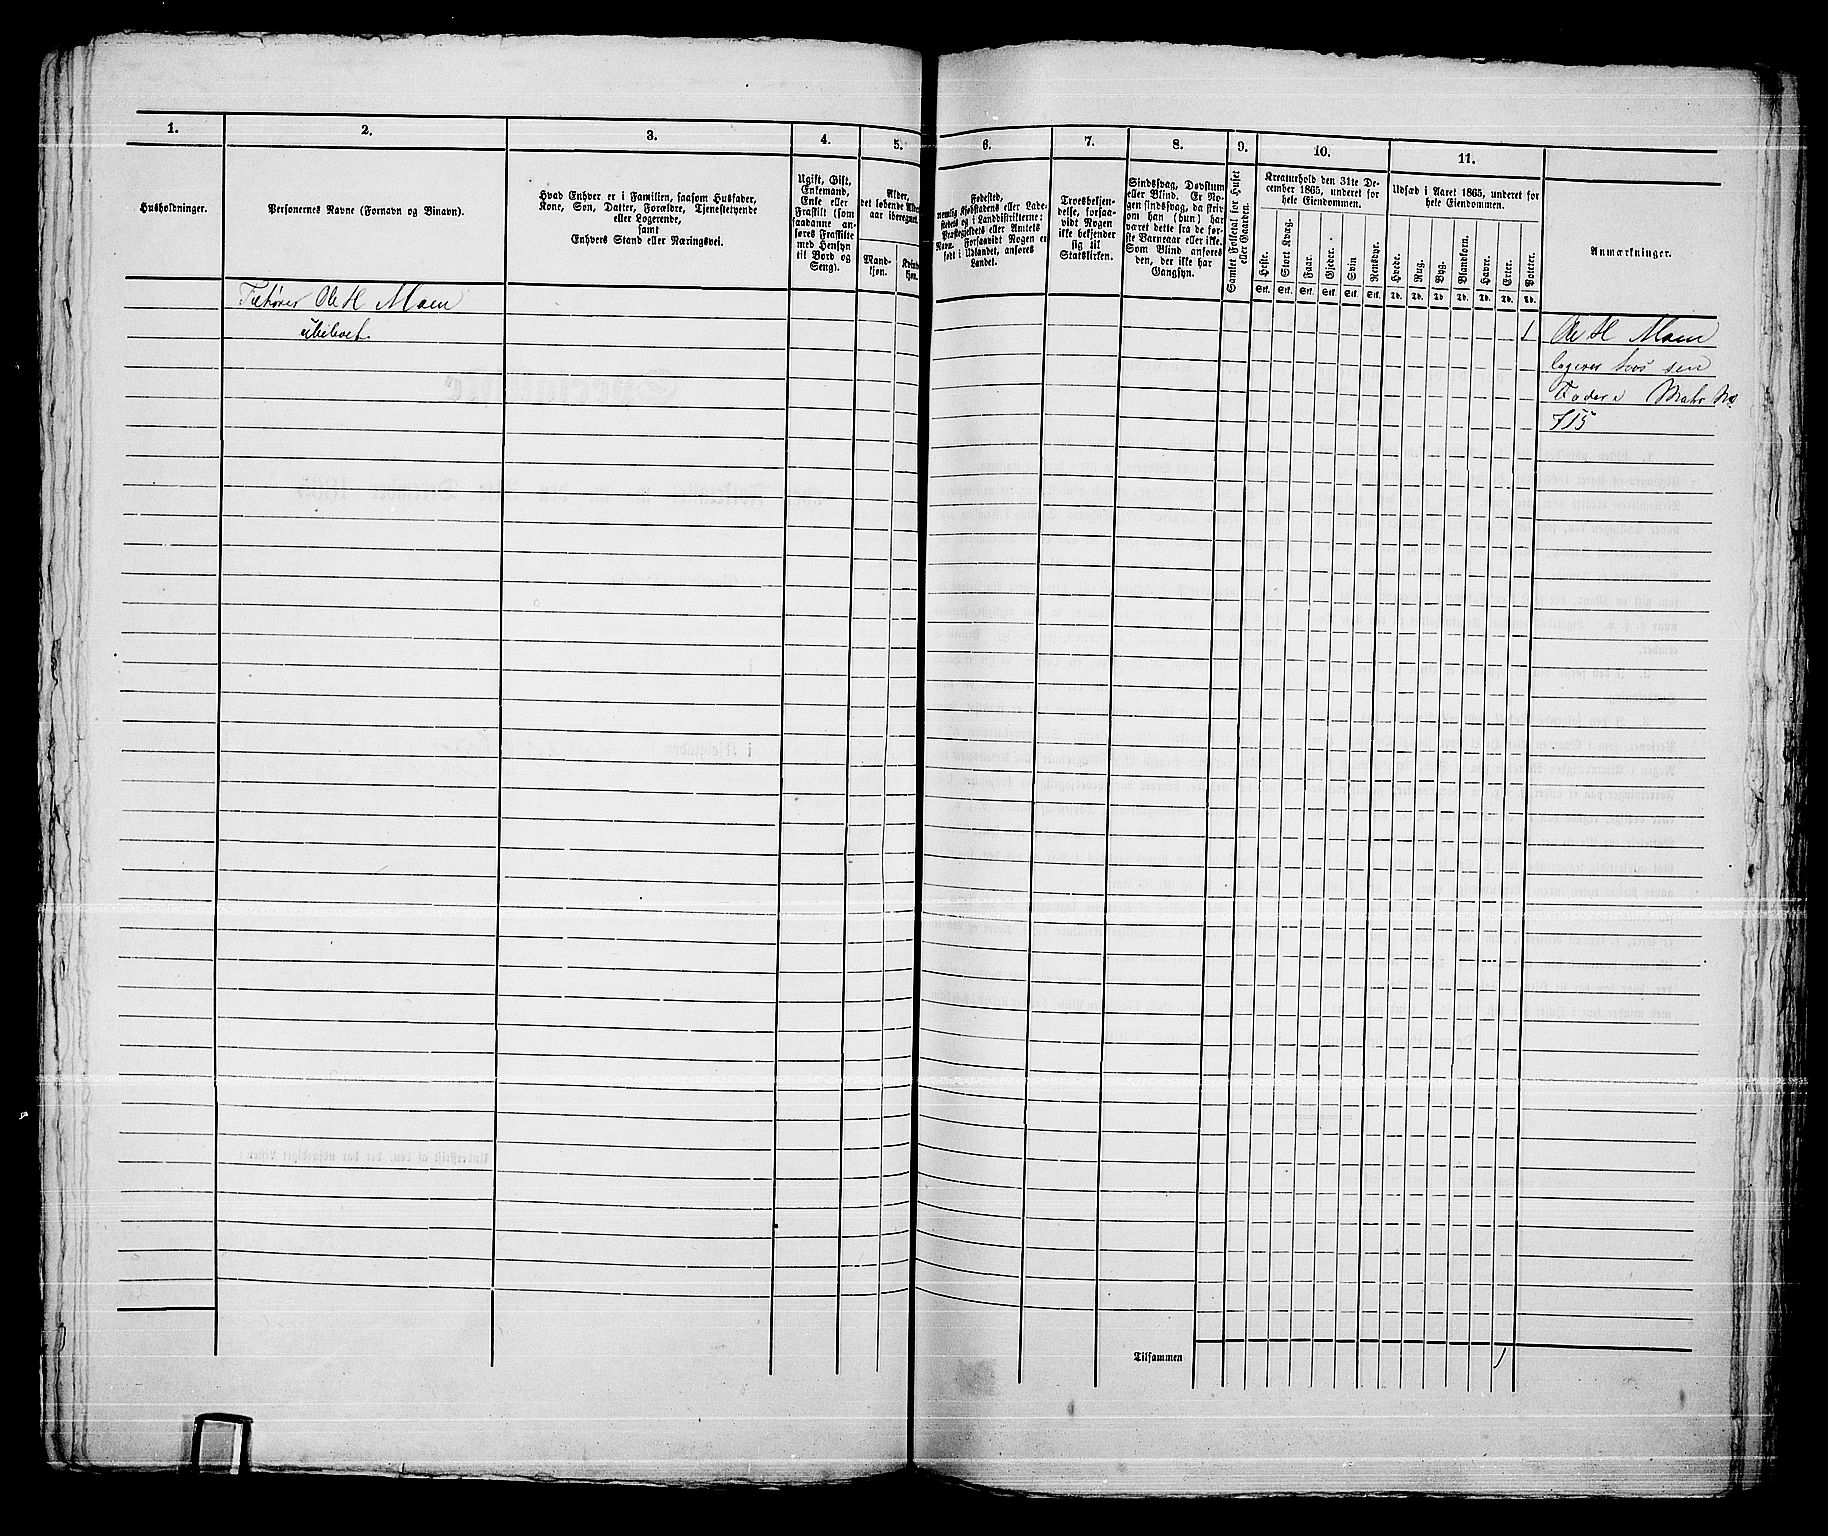 1.
2.
3.
4.
5.
6.
7.
8.
9.
10.
11.
Husholdninger.
Personernes Navne (Fornavn og Binavn).
Hvad Enhver er i Familien, saasom Husfader,
Kone, Søn, Datter, Forældre, Tjenestetyende
eller Logerende,
samt
Enhvers Stand eller Næringsvei.
Ugift, Gift,
Enkemand,
Enke eller
Fraskilt (som
saadanne an-
føres Fraskilte
med Hensyn
til Bord og
Seng).
Alder,
det løbende Alders-
aar iberegnet.
Mand-
kjøn.
Kvinde-
kjøn.
Fødested,
nemlig Kjøbstadens eller Lade-
stedets og i Landdistrikterne:
Præstegjeldets eller Amtets
Navn. Forsaavidt Nogen er
født i Udlandet, anføres
Landet.
Troesbekjen-
delse, forsaa-
vidt Nogen
ikke bekjender
sig til
Statskirken.
Sindssvag, Døvstum
eller Blind. Er No-
gen sindssvag, da skriv
om han (hun) har
været dette fra de før-
ste Barneaar eller ikke.
Som Blind ansøres
den, der ikke har
Gangsyn.
Samlet Folketal for Huset
eller Gaarden.
Kreaturhold den 31te De-
cember 1865, underet for
hele Eiendommen.
Heste.
Stort Kvæg.
Faar.
Gjeder.
Svin
Rensdyr.
Stk.
Stk.
Stk.
Stk.
Stk.
Stk.
Udsæd i Aaret 1865, underet for
hele Eiendommen.
Hvede.
Rug.
Byg.
Blandkorn.
Havre.
Erter.
Poteter.
Td.
Td.
Td.
Td.
Td.
Td.
Td.
Anmærkninger.
Tilhører Ole H Moen
ubeboet
1
Ole H Moen
logerer hos sen
Fader Matr No
715
Tilsammen
1